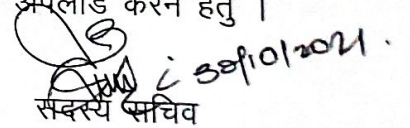 अपलोड करने हेतु ।
30/10/2021.
सदस्य सचिव